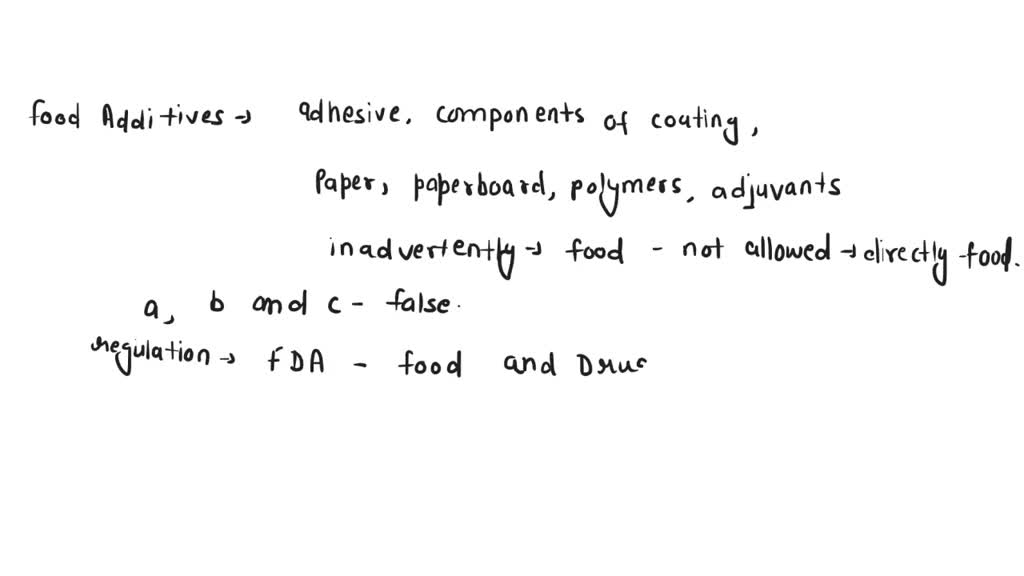 food Additives → adhesive, components of coating,
Paper, paperboard, polymers, adjuvants
inadvertently → food - not allowed → directly food.
a, b and c - false.
regulation → FDA - food and Drug